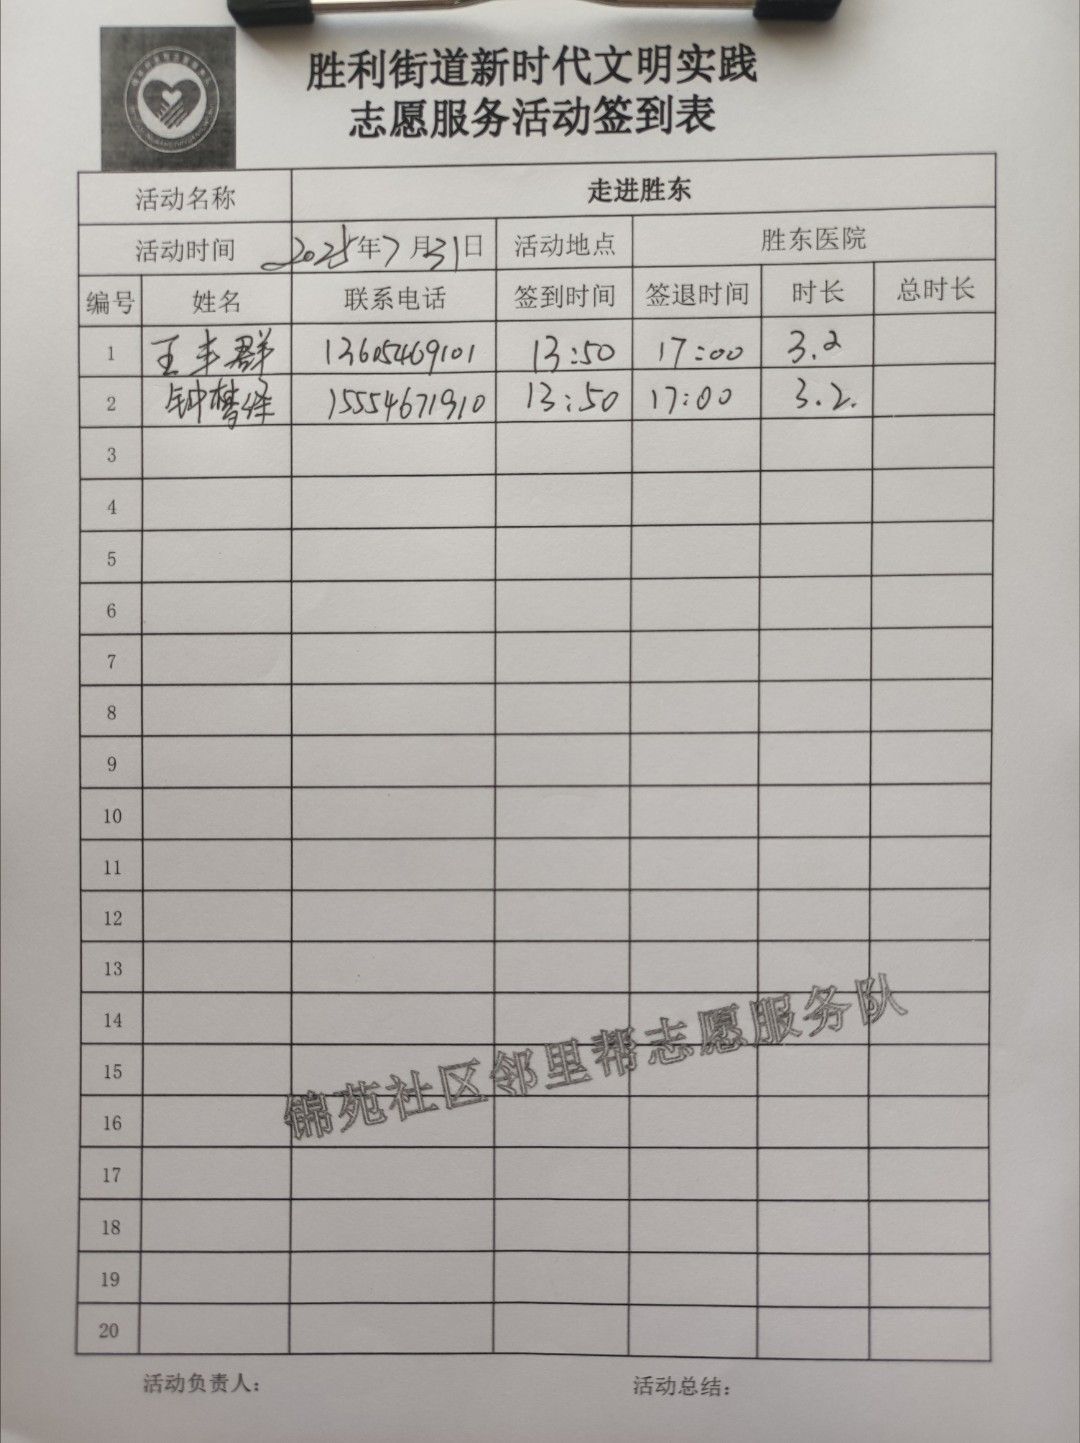 胜利街道新时代文明实践
志愿服务活动签到表
活动名称 走进胜东
活动时间 2025年7月31日 活动地点 胜东医院
编号 姓名 联系电话 签到时间 签退时间 时长 总时长
1 王丰群 13605469101 13:50 17:00 3.2
2 钟梦绎 15554671910 13:50 17:00 3.2.
3
4
5
6
7
8
9
10
11
12
13
14
15
16
17
18
19
20
锦苑社区邻里帮志愿服务队
活动负责人: 活动总结: